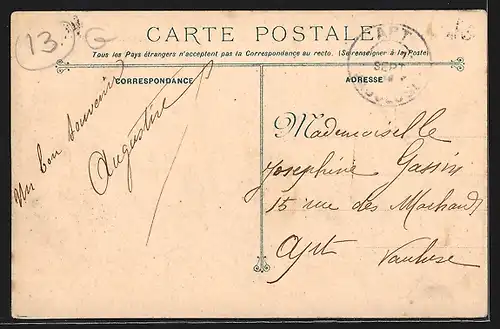 13 G
CARTE POSTALE
Tous les Pays étrangers n'acceptent pas la Correspondance au recto. (Se renseigner à la Poste)
CORRESPONDANCE
ADRESSE
APT
SEPT
VAUCLUSE
Un bon souvenir
Augustine
Mademoiselle
Josephine Gassin
15 rue des Marchands
Apt Vaucluse